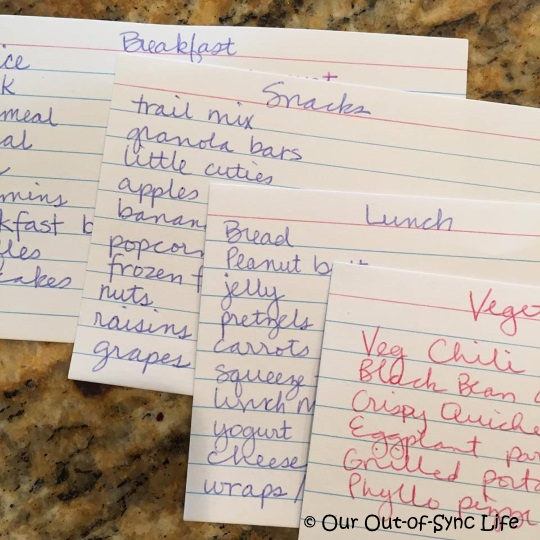 Breakfast
ice
k
meal
al
mins
kfast b
les
cakes
Snacks
trail mix
granola bars
little cuties
apples
banan
popcor
frozen f
nuts
raisins
grapes
Lunch
Bread
Peanut b
jelly
pretzels
carrots
squeeze
lunch m
yogurt
cheese
wraps /
Veget
Veg Chili
Black Bean
Crispy Quiche
Eggplant par
Grilled porta
Phyllo
© Our Out-of-Sync Life